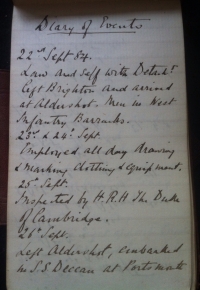 Diary of Events
22nd Sept 84.
Law and self with Detcht
left Brighton and arrived
at Aldershot. Men in West
Infantry Barracks.
23rd & 24th Sept.
Employed all day drawing
& marking clothing & equipment.
25th Sept.
Inspected by H.R.H The Duke
of Cambridge.
26th Sept.
Left Aldershot, embarked
in S.S Deccan at Portsmouth